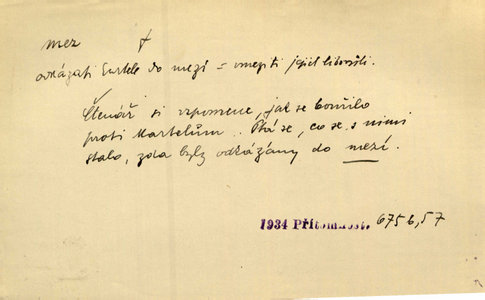 mez †
odkázati kartele do mezí = omeziti jejich libovůli.
Čtenář si vzpomene, jak se bouřilo
proti kartelům.. Ptá se, co se s nimi
stalo, zda byly odkázány do mezí.
1934 Přítomnost. 675 b, 57